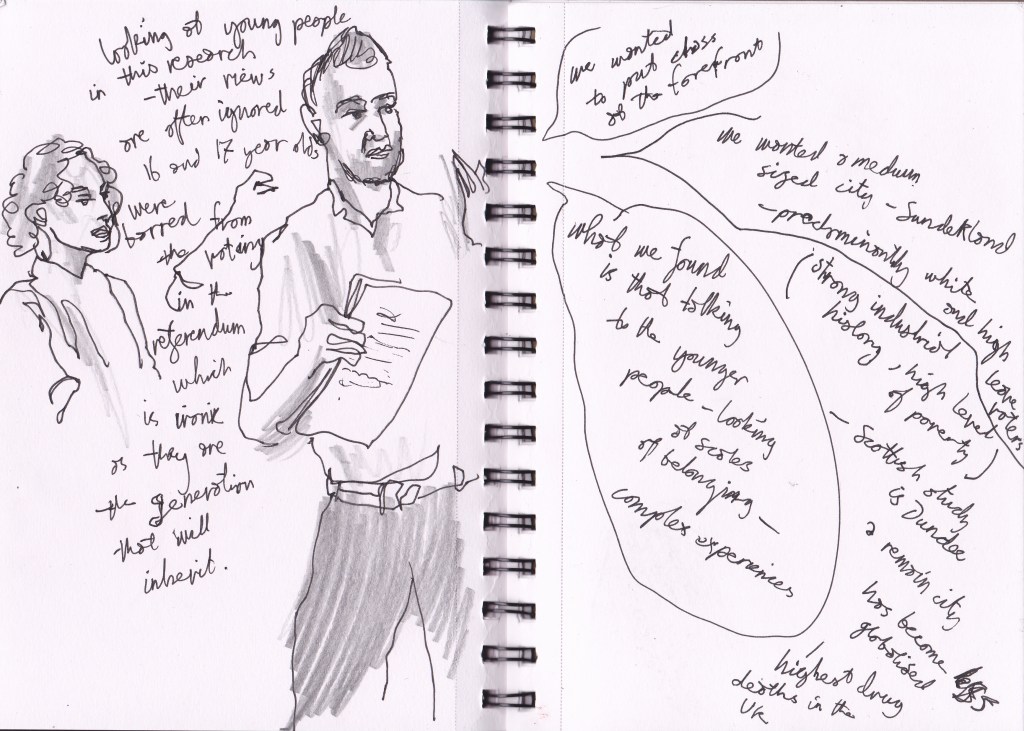 looking at young people
in this research
- their views
are often ignored
16 and 17 year olds
were
barred from
the voting
in the
referendum
which
is ironic
as they are
the generation
that will
inherit.
we wanted
to put class
at the forefront
we wanted a medium
sized city - Sunderland
- predominantly white
and high
leave
voters
(strong industrial
history, high level
of poverty)
what we found
is that talking
to the younger
people - looking
at scales
of belonging -
complex experiences
- Scottish study
is Dundee
a remain city
has become
globalised
highest drug
deaths in the
UK